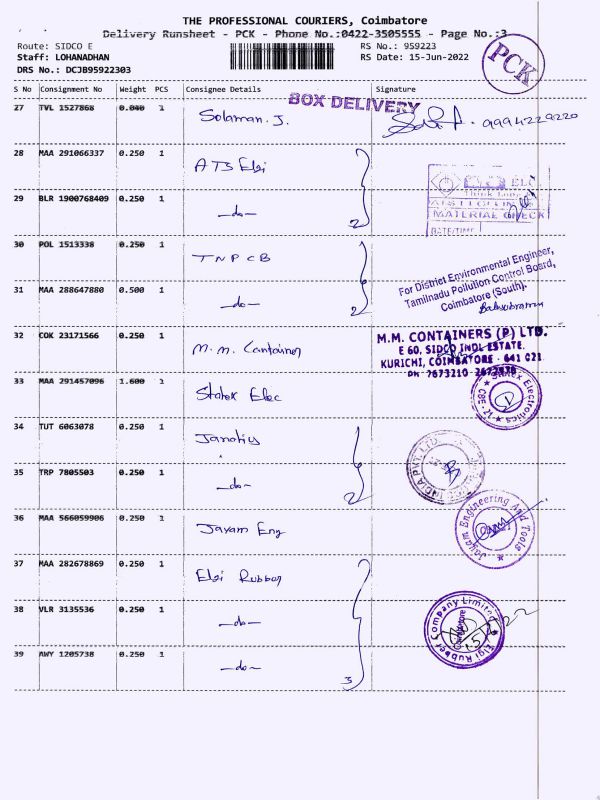 THE PROFESSIONAL COURIERS, Coimbatore
Delivery Runsheet - PCK - Phone No.:0422-3505555 - Page No.:3
Route: SIDCO E
RS No.: 959223
Staff: LOHANADHAN
RS Date: 15-Jun-2022
DRS No.: DCJB95922303
PCK
S No Consignment No Weight PCS Consignee Details Signature
BOX DELIVERY
27 TVL 1527868 0.040 1 Solaman. J. 9994229220
28 MAA 291066337 0.250 1 ATS Elgi
29 BLR 1900768409 0.250 1 -do- 2
ELGi
MATERIAL CHECK
DATE/TIME
30 POL 1513338 0.250 1 TNPCB
31 MAA 288647880 0.500 1 -do- 2
For District Environmental Engineer,
Tamilnadu Pollution Control Board,
Coimbatore (South).
32 COK 23171566 0.250 1 M.M. Container
M.M. CONTAINERS (P) LTD.
E 60, SIDCO INDL ESTATE.
KURICHI, COIMBATORE - 641 021
33 MAA 291457096 1.600 1 Statex Elec
Statex Electronics
CBE - 21
34 TUT 6063078 0.250 1
35 TRP 7805503 0.250 1 -do- 2
INDIA PVT. LTD.
36 MAA 566059906 0.250 1 Jayam Eng
Jayam Engineering And Tools
37 MAA 282678869 0.250 1 Elgi Rubber
38 VLR 3135536 0.250 1 -do-
Elgi Rubber Company Limited
Coimbatore
39 AWY 1205738 0.250 1 -do- 3